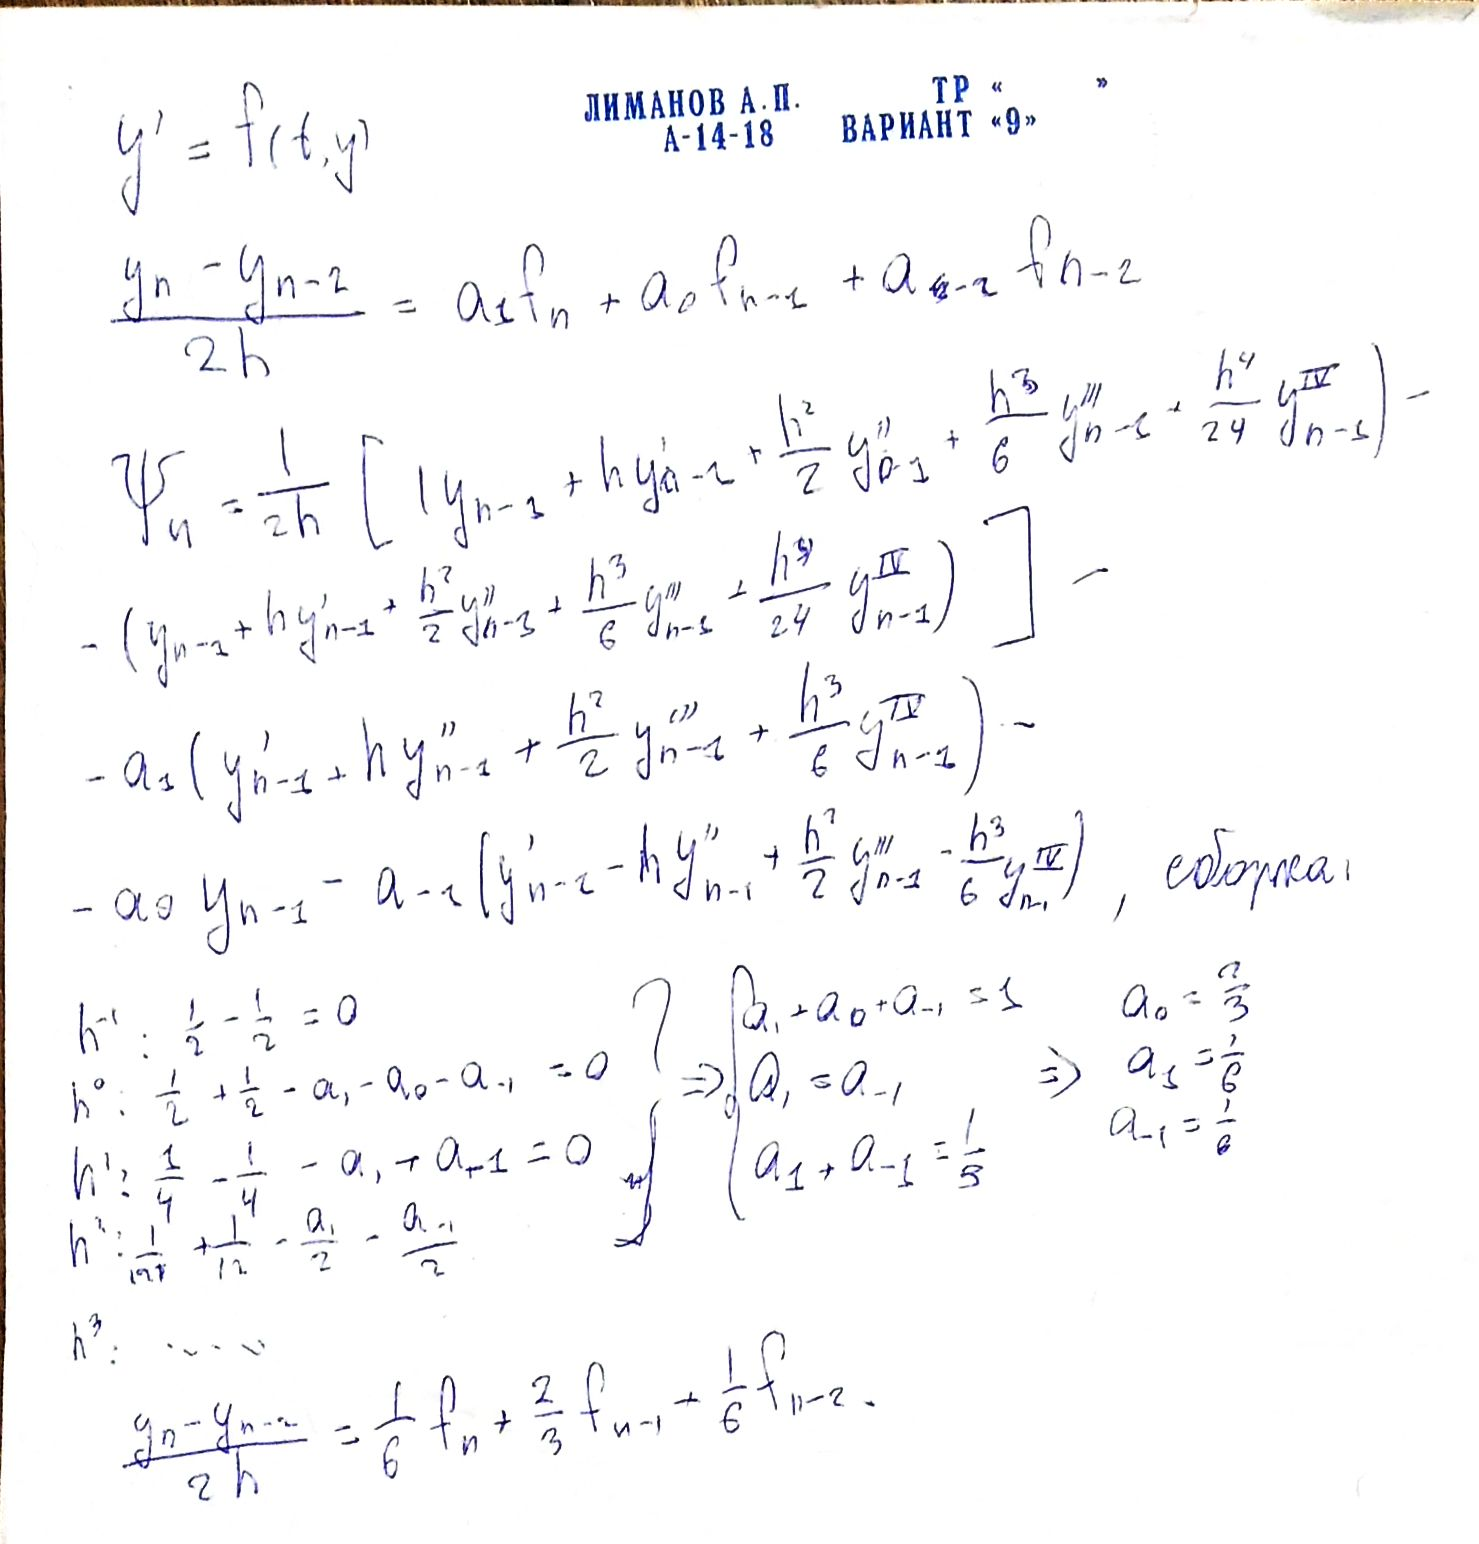 ЛИМАНОВ А.П. ТР « »
А-14-18 ВАРИАНТ «9»
y' = f(t,y)
(yn - yn-2)/2h = a1fn + a0fn-1 + a-1 fn-2
Ψn = 1/2h [(yn-1 + hy'n-1 + h²/2 y''n-1 + h³/6 y'''n-1 + h⁴/24 y^IVn-1) -
- (yn-1 + hy'n-1 + h²/2 y''n-1 + h³/6 y'''n-1 + h⁴/24 y^IVn-1)] -
- a1(y'n-1 + hy''n-1 + h²/2 y'''n-1 + h³/6 y^IVn-1) -
- a0 yn-1 - a-1(y'n-1 - hy''n-1 + h²/2 y'''n-1 - h³/6 y^IVn-1), сборка:
h⁻¹: 1/2 - 1/2 = 0
h⁰: 1/2 + 1/2 - a1 - a0 - a-1 = 0
h¹: 1/4 - 1/4 - a1 + a-1 = 0
h²: 1/12 + 1/12 - a1/2 - a-1/2
h³: .....
=> { a1 + a0 + a-1 = 1
a1 = a-1
a1 + a-1 = 1/3
=> a0 = 2/3
a1 = 1/6
a-1 = 1/6
(yn - yn-2)/2h = 1/6 fn + 2/3 fn-1 + 1/6 fn-2.